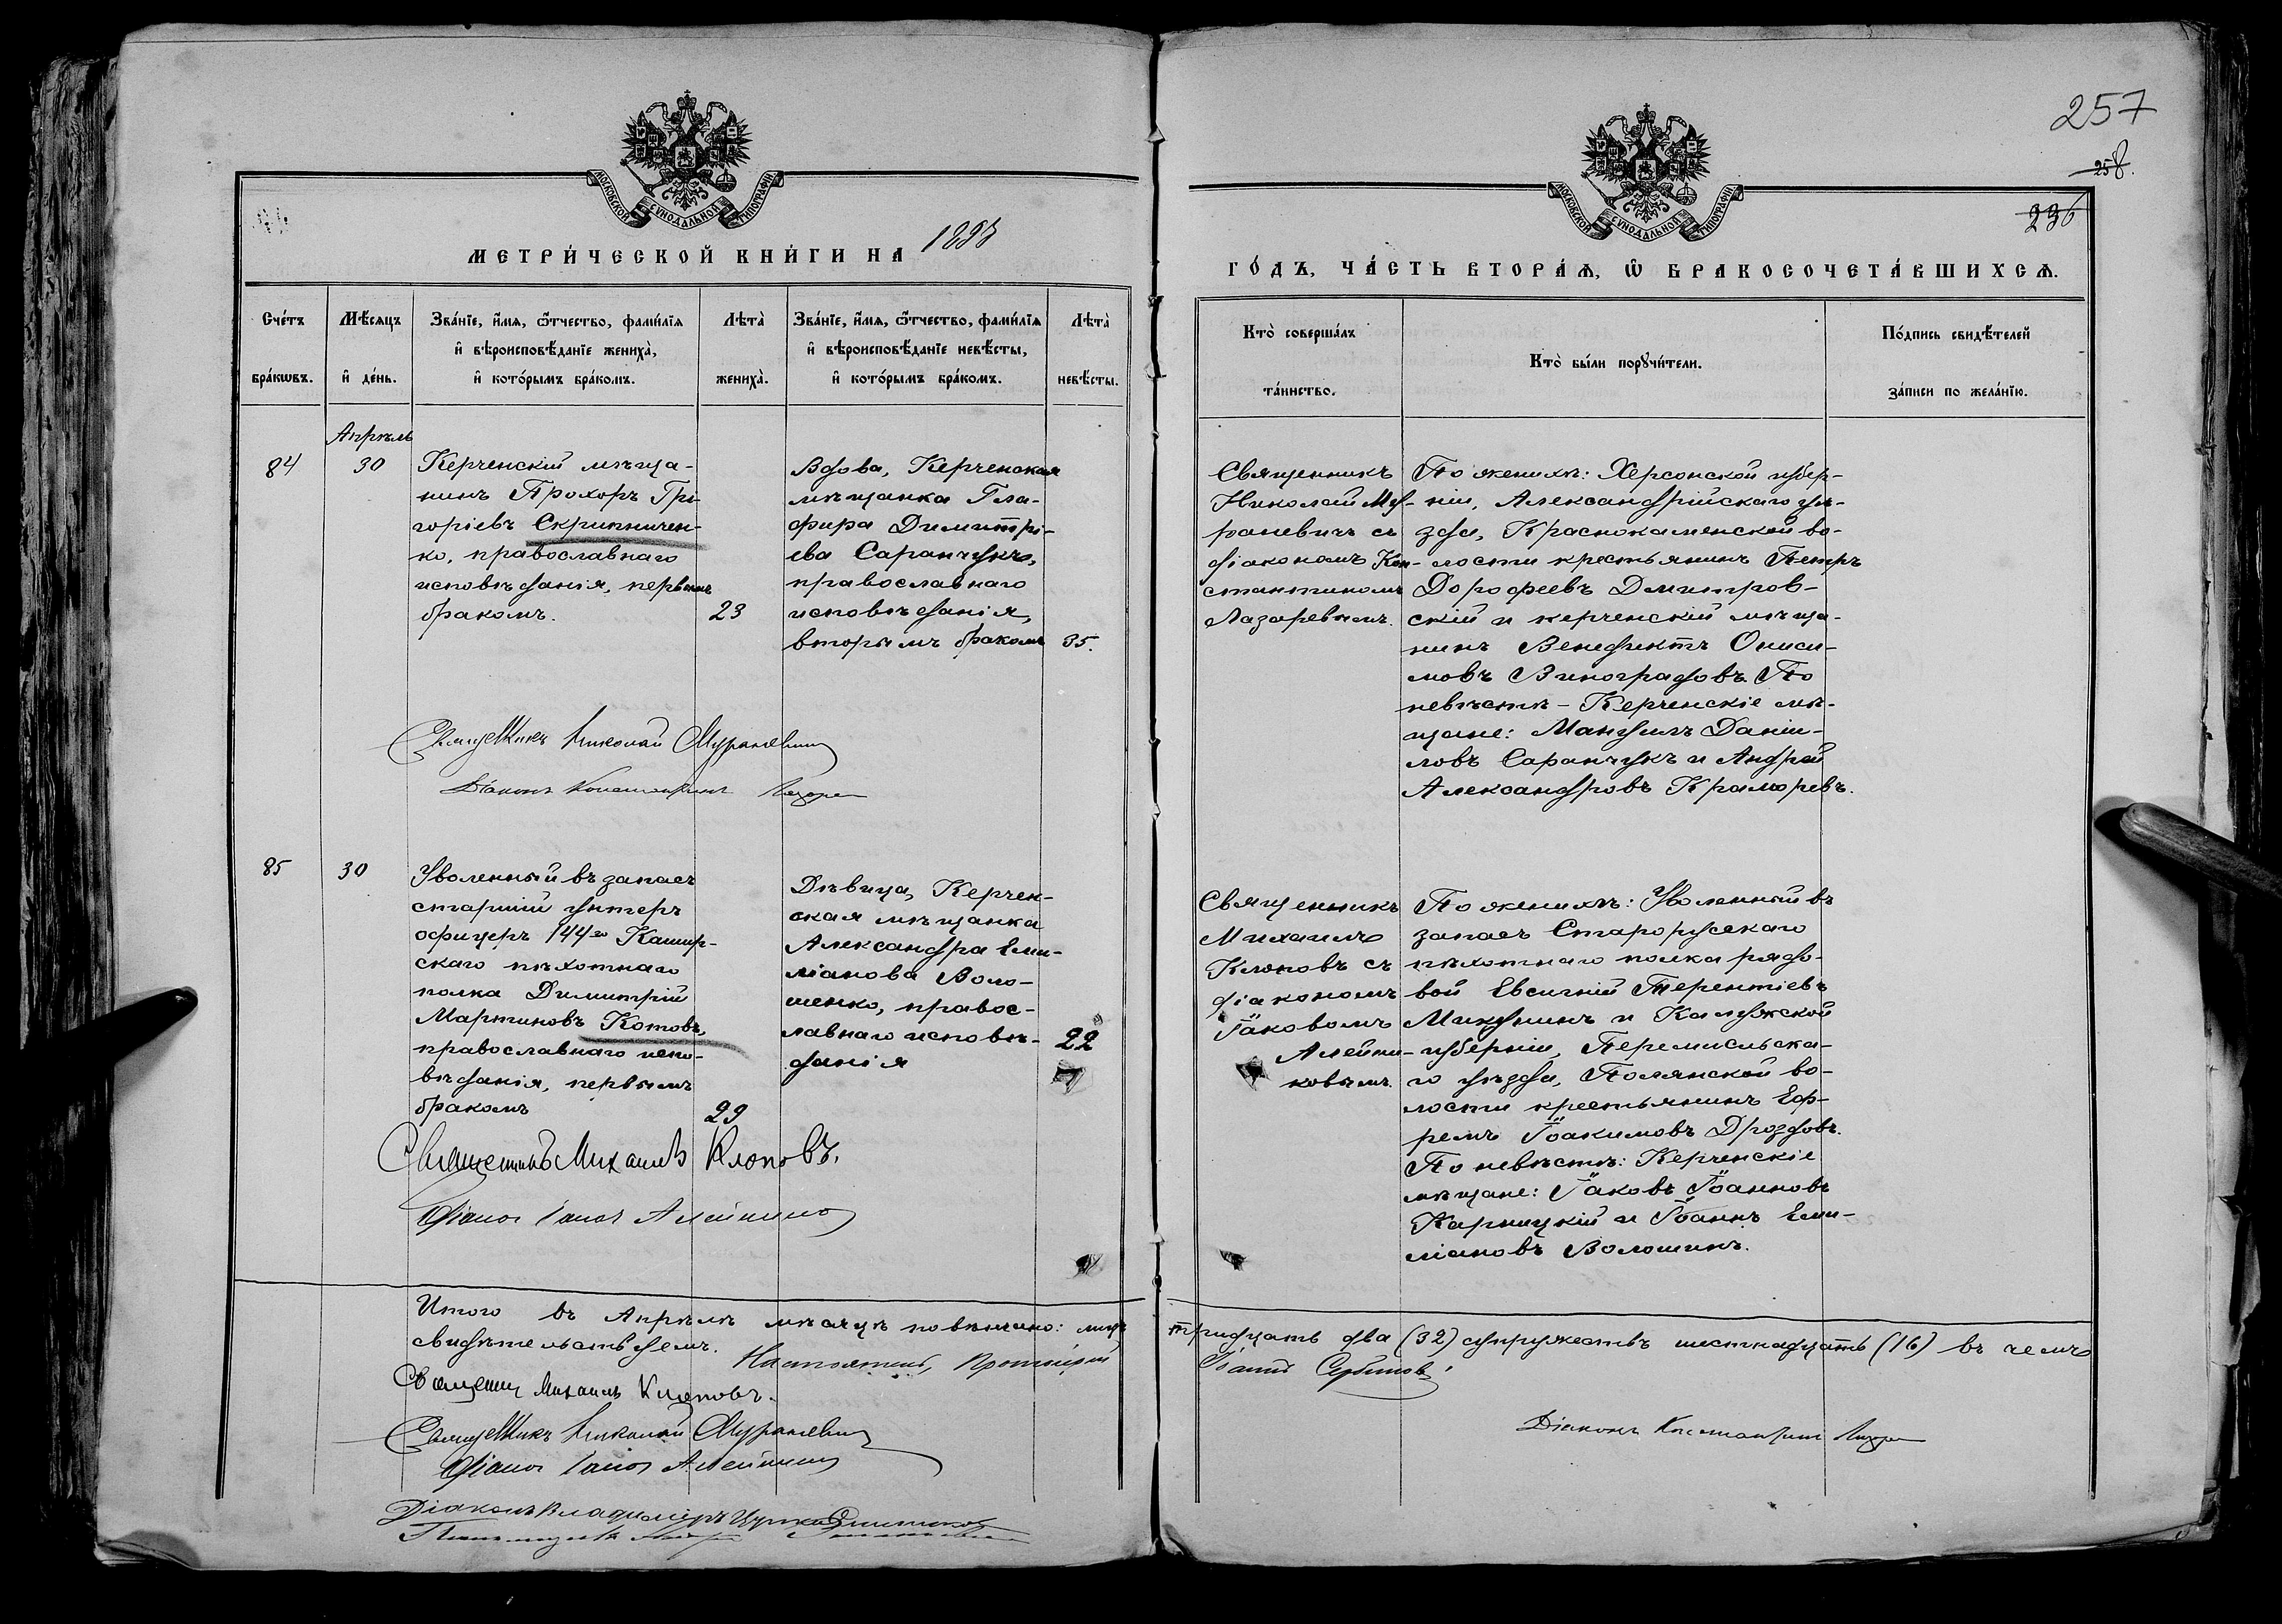 257
258.
236
МОСКОВСКОЙ СУНОДАЛЬНОЙ ТИПОГРАФІИ
МЕТРИ́ЧЕСКОЙ КНИ́ГИ НА 1893
МОСКОВСКОЙ СУНОДАЛЬНОЙ ТИПОГРАФІИ
ГО́ДЪ, ЧА́СТЬ ВТОРА́Ѧ, Ѽ БРАКОСОЧЕТА́ВШИХСѦ.
Сче́тъ
бра́кѡвъ.
Мѣ́сѧцъ
и҆ де́нь.
Зва́нїе, и҆́мѧ, ѻ҆́тчество, фами́лїѧ
и҆ вѣроисповѣ́данїе жениха̀,
и҆ кото́рымъ бра́комъ.
Лѣта̀
жениха̀.
Зва́нїе, и҆́мѧ, ѻ҆́тчество, фами́лїѧ
и҆ вѣроисповѣ́данїе невѣ́сты,
и҆ кото́рымъ бра́комъ.
Лѣта̀
невѣ́сты.
Кто̀ соверша́лъ
та́инство.
Кто̀ бы́ли порꙋчи́тели.
По́дпись свидѣ́телей
за́писи по жела́нїю.
Апрѣль
84
30
Керченскій мѣща-
нинъ Прохоръ Гри
горіевъ Скрипничен-
ко, православнаго
исповѣданія, первымъ
бракомъ.
23
Вдова, Керченская
мѣщанка Гла-
фира Димитрі-
ева Саранчукъ,
православнаго
исповѣданія,
вторымъ бракомъ
35.
Священникъ
Николай Му-
раневичъ съ
діакономъ Кон-
стантиномъ
Лазаревымъ.
По женихѣ: Херсонской губер-
ніи, Александрійскаго уѣ-
зда, Краснокаменской во-
лости крестьянинъ Петръ
Дорофеевъ Дмитров-
скій и керченскій мѣща-
нинъ Венедиктъ Ониси-
мовъ Виноградовъ. По
невѣстѣ - Керченскіе мѣ-
щане: Мануилъ Даніи-
ловъ Саранчукъ и Андрей
Александровъ Крамаревъ.
Священникъ Николай Мураневичъ
Діаконъ Константинъ
85
30
Уволенный въ запасъ
старшій унтеръ
офицеръ 144го Кашир-
скаго пѣхотнаго
полка Димитрій
Мартиновъ Котовъ,
православнаго испо-
вѣданія, первымъ
бракомъ
29
Дѣвица, Керчен-
ская мѣщанка
Александра Еми-
ліанова Воло-
шенко, правос-
лавнаго исповѣ-
данія
22
Священникъ
Михаилъ
Клоповъ съ
діакономъ
Іаковомъ
Алейни-
ковымъ.
По женихѣ: Уволенный въ
запасъ Старорусскаго
пѣхотнаго полка рядо-
вой Евсигній Терентіевъ
Микулинъ и Калужской
губерніи, Перемисльска-
го уѣзда, Полянской во-
лости крестьянинъ Еф-
ремъ Іоакимовъ Дроздовъ.
По невѣстѣ: Керченскіе
мѣщане: Іаковъ Іоанновъ
Карницкій и Іоаннъ Еми-
ліановъ Волошинъ.
Священникъ Михаилъ Клоповъ.
Итого въ Апрѣлѣ мѣсяцѣ повѣнчано: лицъ тридцать два (32) супружествъ шестнадцать (16) въ чемъ
свидѣтельствуемъ. Настоятель, Протоіерей
Михаилъ Клоповъ.
Священникъ Николай Мураневичъ
Діаконъ Константинъ
Діаконъ Владимеръ